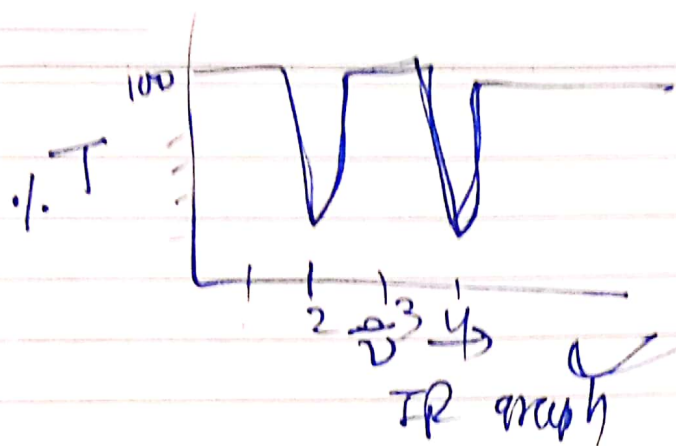 100
% T
2 ν̄ 3 4
IR graph